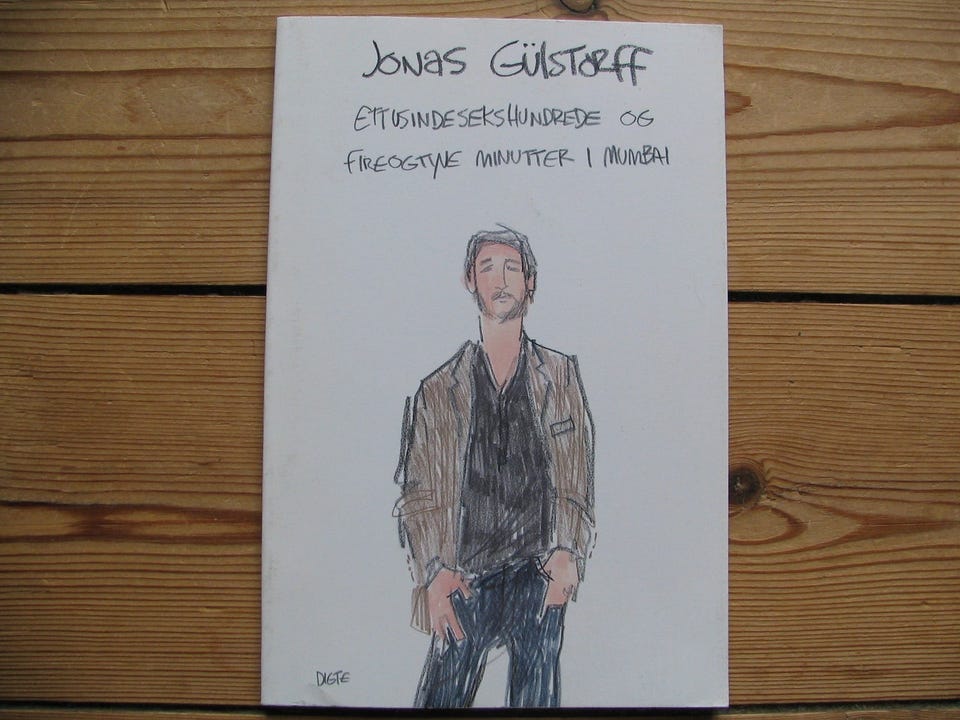 Jonas Gülstorff
ETTUSINDESEKSHUNDREDE OG
FIREOGTYVE MINUTTER I MUMBAI
DIGTE